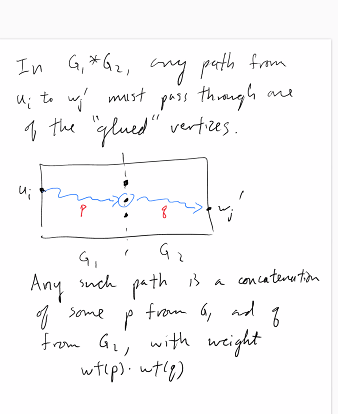 In G₁*G₂, any path from
uᵢ to wⱼ' must pass through one
of the "glued" vertices.
uᵢ
p
q
wⱼ'
G₁
G₂
Any such path is a concatenation
of some p from G₁ and q
from G₂, with weight
wt(p)·wt(q)